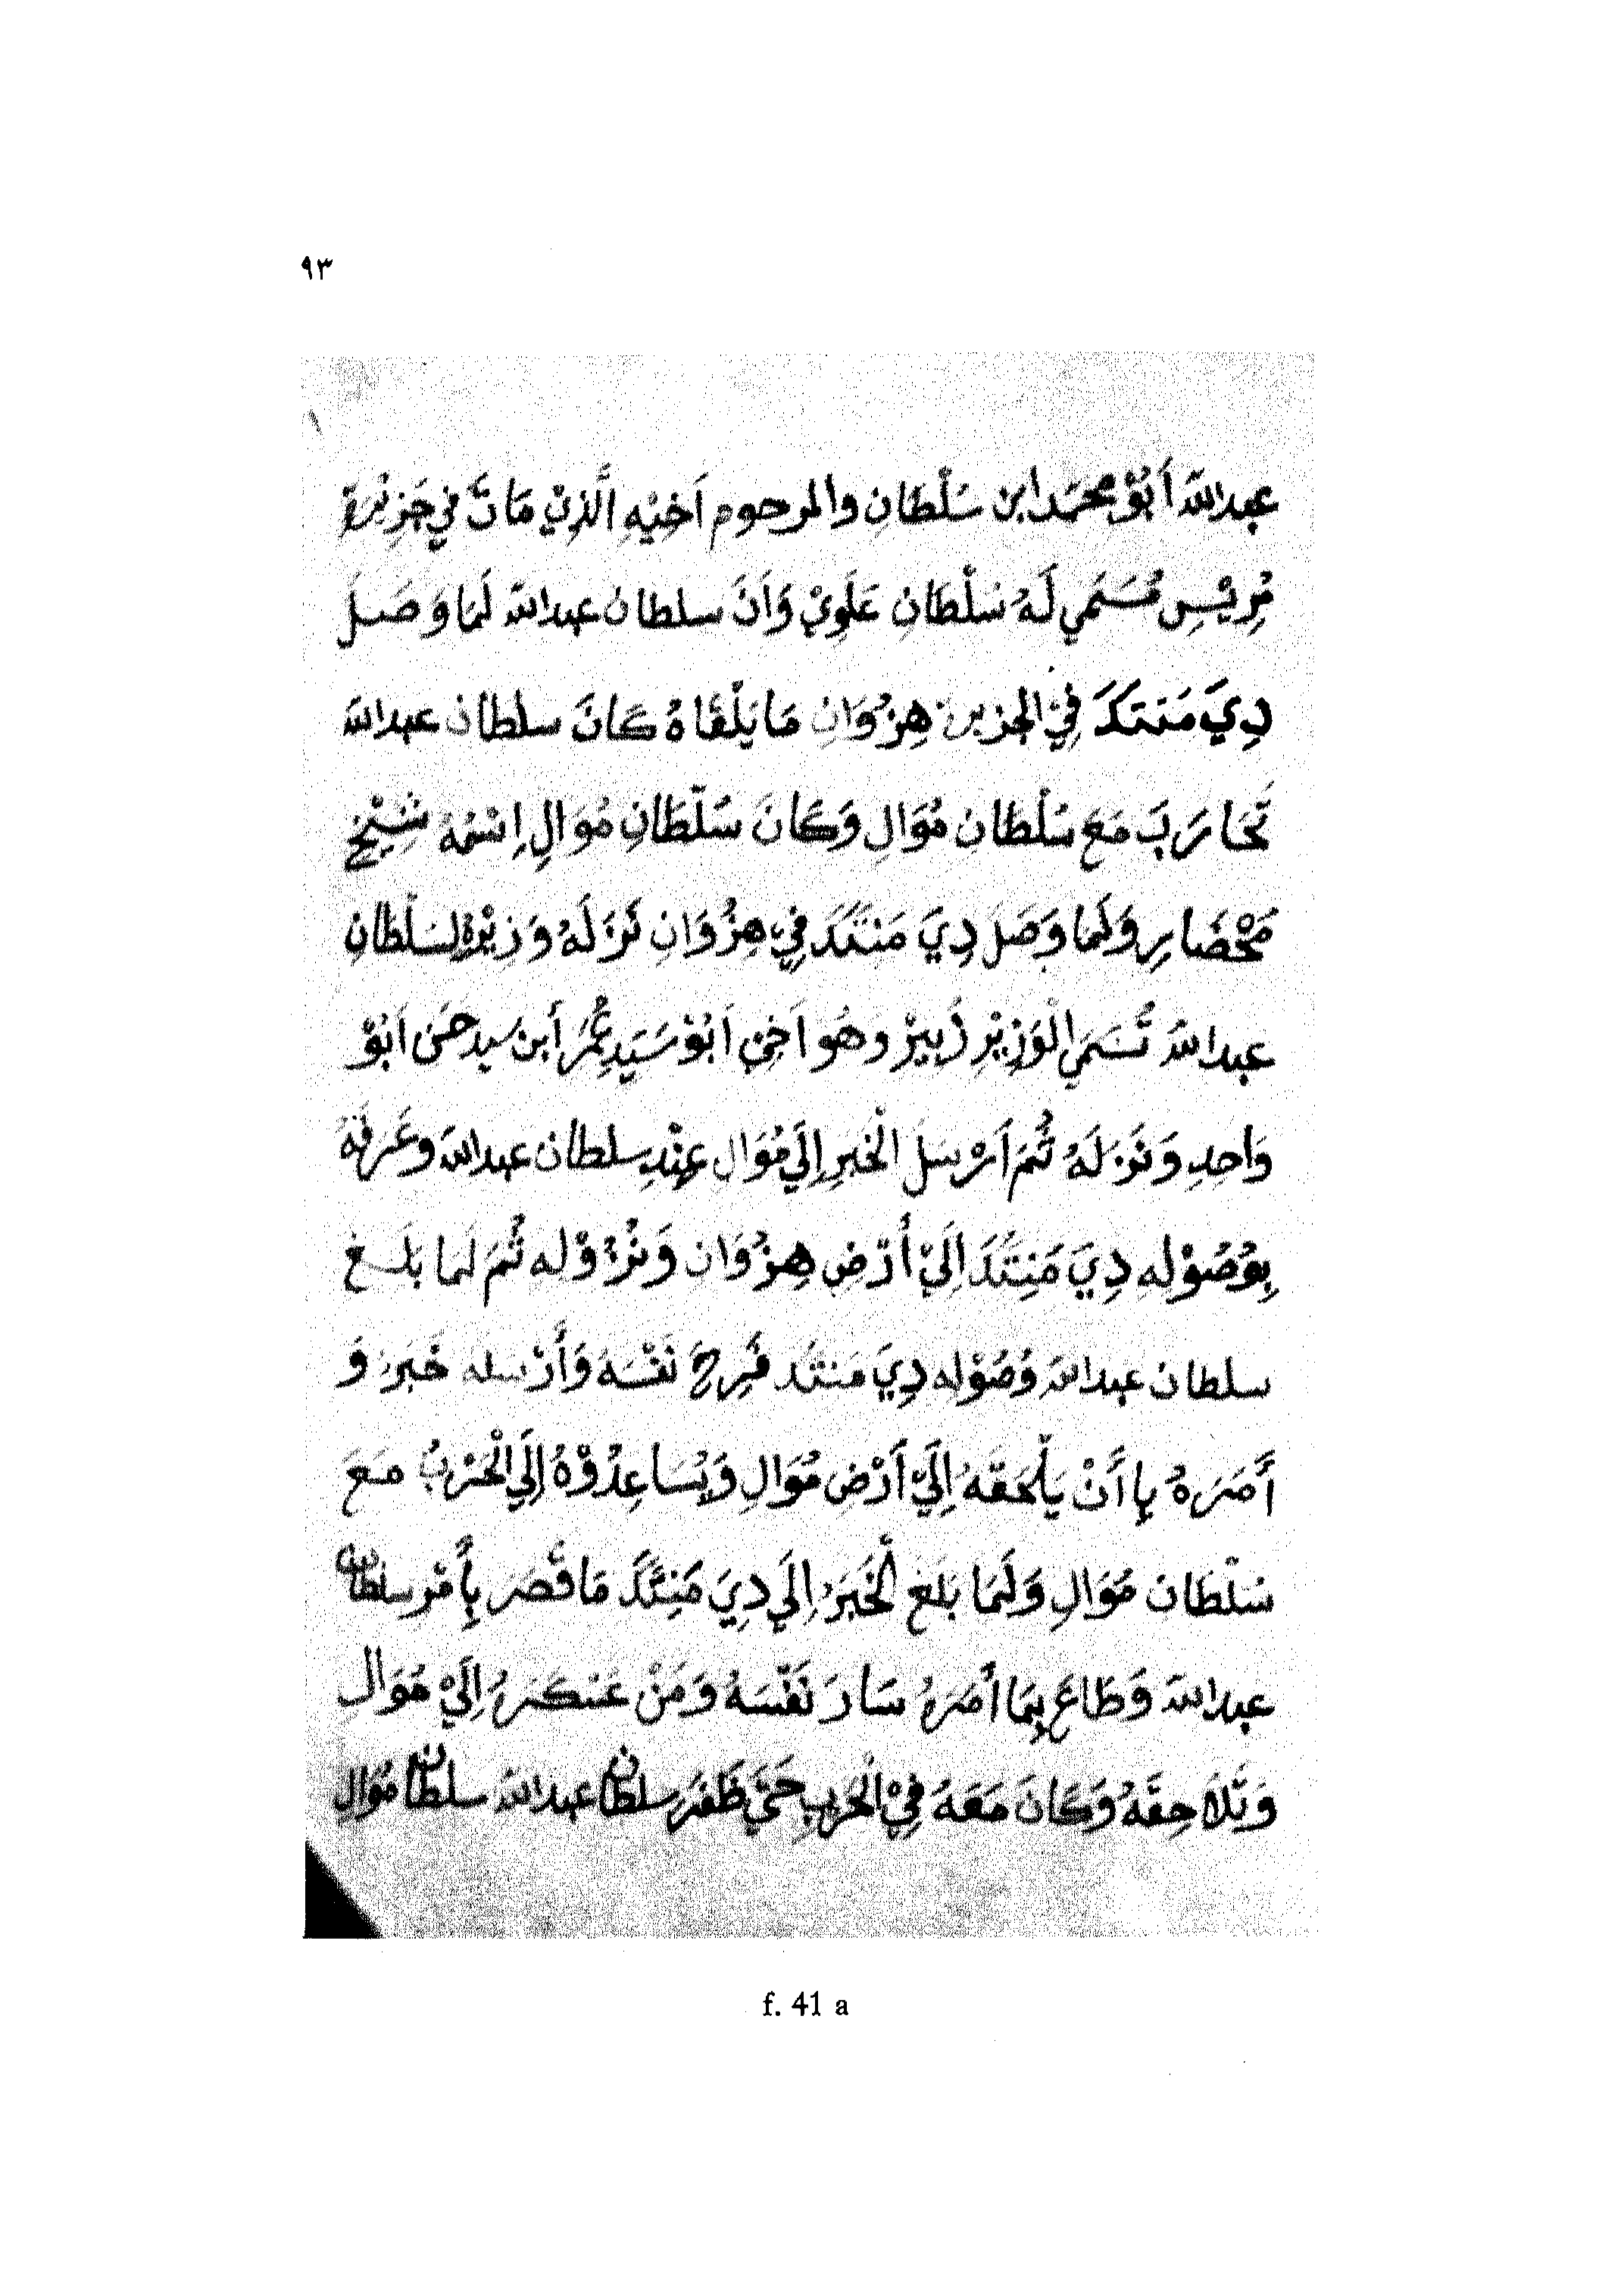 ٩٣
عبدالله أَبُوْ محمَد ابن سُلْطَانِ والمرحوم اَخِيْهِ الَّذِيْ مَاتَ فِي جَزِيْرَةَ
مُرِيْسِ مُسَمَي لَهُ سُلْطَانِ عَلَوِيْ وَاَنَ سلطان عبدالله لَمَا وَصَلَ
دِيَ مَنتَدَ فِيْ الجزيرة هِنزُوَانِ مَا يَلْقَاهُ كَانَ سلطان عبدالله
تَحَارَبَ مَعَ سُلْطَان مُوَالِ وَكَانَ سُلْطَانِ مُوَالِ اِسْمُهُ شِيْخِ
مَحْضَارِ وَلَمَا وَصَلَ دِيَ مَنتَدَ فِيْ هِنزُوَانِ نَزَلَهُ وَزِيْرهُ لِسُلْطَانِ
عبدالله تُسَمَي الْوَزِيْرِ زُبِيرْ وهُو اَخِيْ اَبُوْ سَيَدِ عُمَرُ أَبن سيد حسَن اَبُوْ
وَاحِدِ وَنَزَلَهُ ثُمَ اَرْسَلَ الْخَبَرِ اِلَي مُوَال عِنْدِ سلطان عبدالله وعَرفَهُ
بِوُصُوْلِهِ دِيَ مَنِتَدَ اِلَيْ أَرْضِ هِنزُوَان وَنُزُوْلِه ثُمَ لَما بَلَغ
سلطان عبدالله وُصُوْلِه دِيَ مَنتَد فَرِحَ نَفْسَهُ وَأَرْسله خَبَرَ وَ
أَمَرَهُ بِاأَنْ يَلْحَقهُ اِلَيْ أَرْضِ مُوَالِ وَيُسَاعِدُوْهُ اِلَي الْحَرْبُ مَعَ
سُلْطَان مُوَالِ وَلَمَا بَلَغ الْخَبَرُ اِلَي دِيَ مَنِتَدَ مَا قْصَرَ بِأَمْر سلطان
عبدالله وَطَاعَ بِمَا أَمَرَهُ سَارَ نَفْسَهُ وَمَنْ عَسْكَرَهُ اِلَيْ مُوَالِ
وَتَلاَحِقَهُ وَكَانَ مَعَهُ فِيْ الْحَرْبِ حَتَي ظَفَرَ سلطان عبدالله سلطان مُوَال
f. 41 a